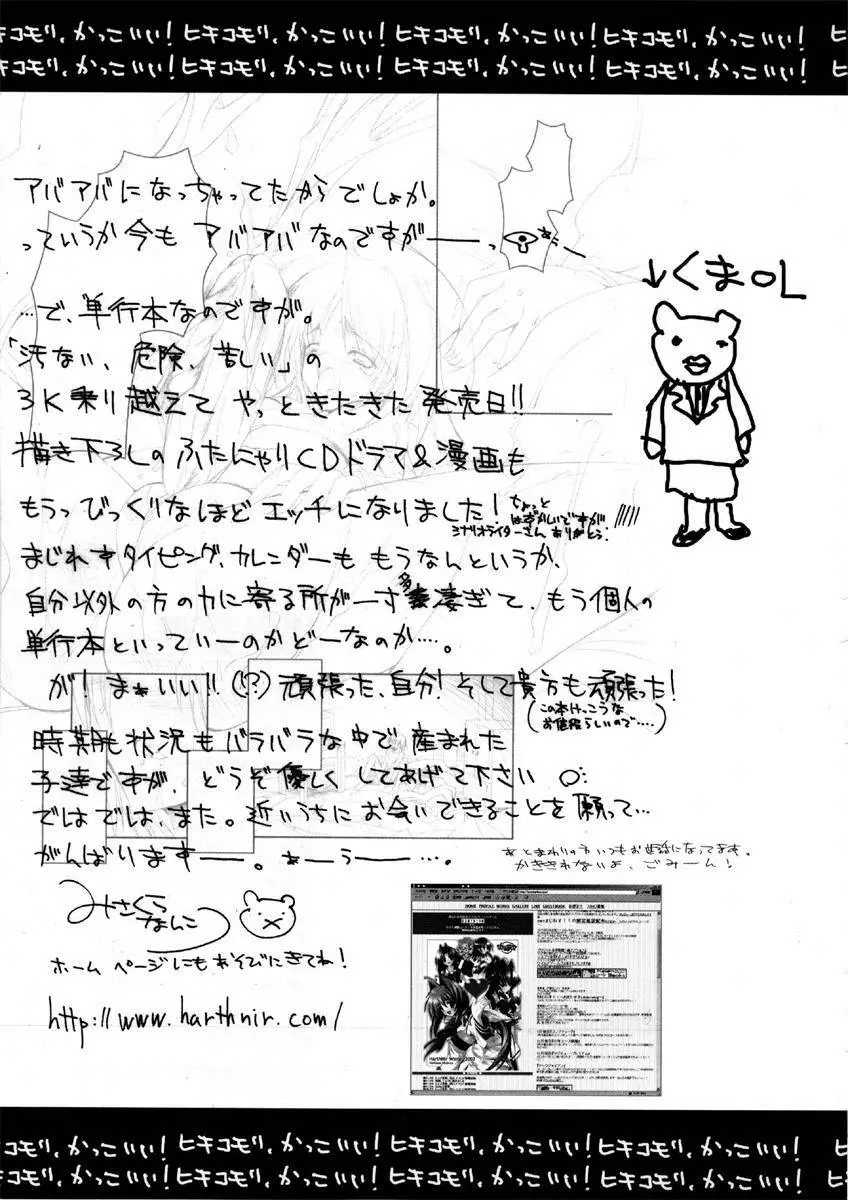 ヒキコモリ、かっこいい！ヒキコモリ、かっこいい！ヒキコモリ、かっこいい！ヒキコモリ、かっこいい！ ヒ
ヒキコモリ、かっこいい！ヒキコモリ、かっこいい！ヒキコモリ、かっこいい！ヒキコモリ、かっこいい！ ヒ
アバアバになっちゃってたからでしょか。
っていうか今も アバアバなのですがーーっ
↓くまOL
…で、単行本なのですが。
「汚ない、危険、苦しい」の
3K乗り越えて やっときたきた発売日!!
描き下ろしの ふたにゃりCDドラマ&漫画も
もうっびっくりなほど エッチになりました！
ちょっと
はずかしいですが
シナリオライターさん ありがとう！
まじれすタイピング、カレンダーも もうなんというか、
自分以外の方の力に寄る所が一寸多凄ぎて、もう個人の
単行本といっていーのかどーなのか…。
が！まぁいい!!(!?)頑張った、自分！そして貴方も頑張った！
(この本けっこうな
お値段らしいので….)
時期も状況もバラバラな中で産まれた
子達ですが、どうぞ優しく してあげて下さい
ではでは、また。近いうちにお会いできることを願って…
がんばりますーー。あーうー…。
あとまわりの方いつもお世話になってます。
かききれないよ、ごみーん！
みさくら
なんこつ
ホームページにもあそびにきてね！
http://www.harthnir.com/
ヒキコモリ、かっこいい！ヒキコモリ、かっこいい！ヒキコモリ、かっこいい！ヒキコモリ、かっこいい！ ヒ
ヒキコモリ、かっこいい！ヒキコモリ、かっこいい！ヒキコモリ、かっこいい！ヒキコモリ、かっこいい！ ヒ